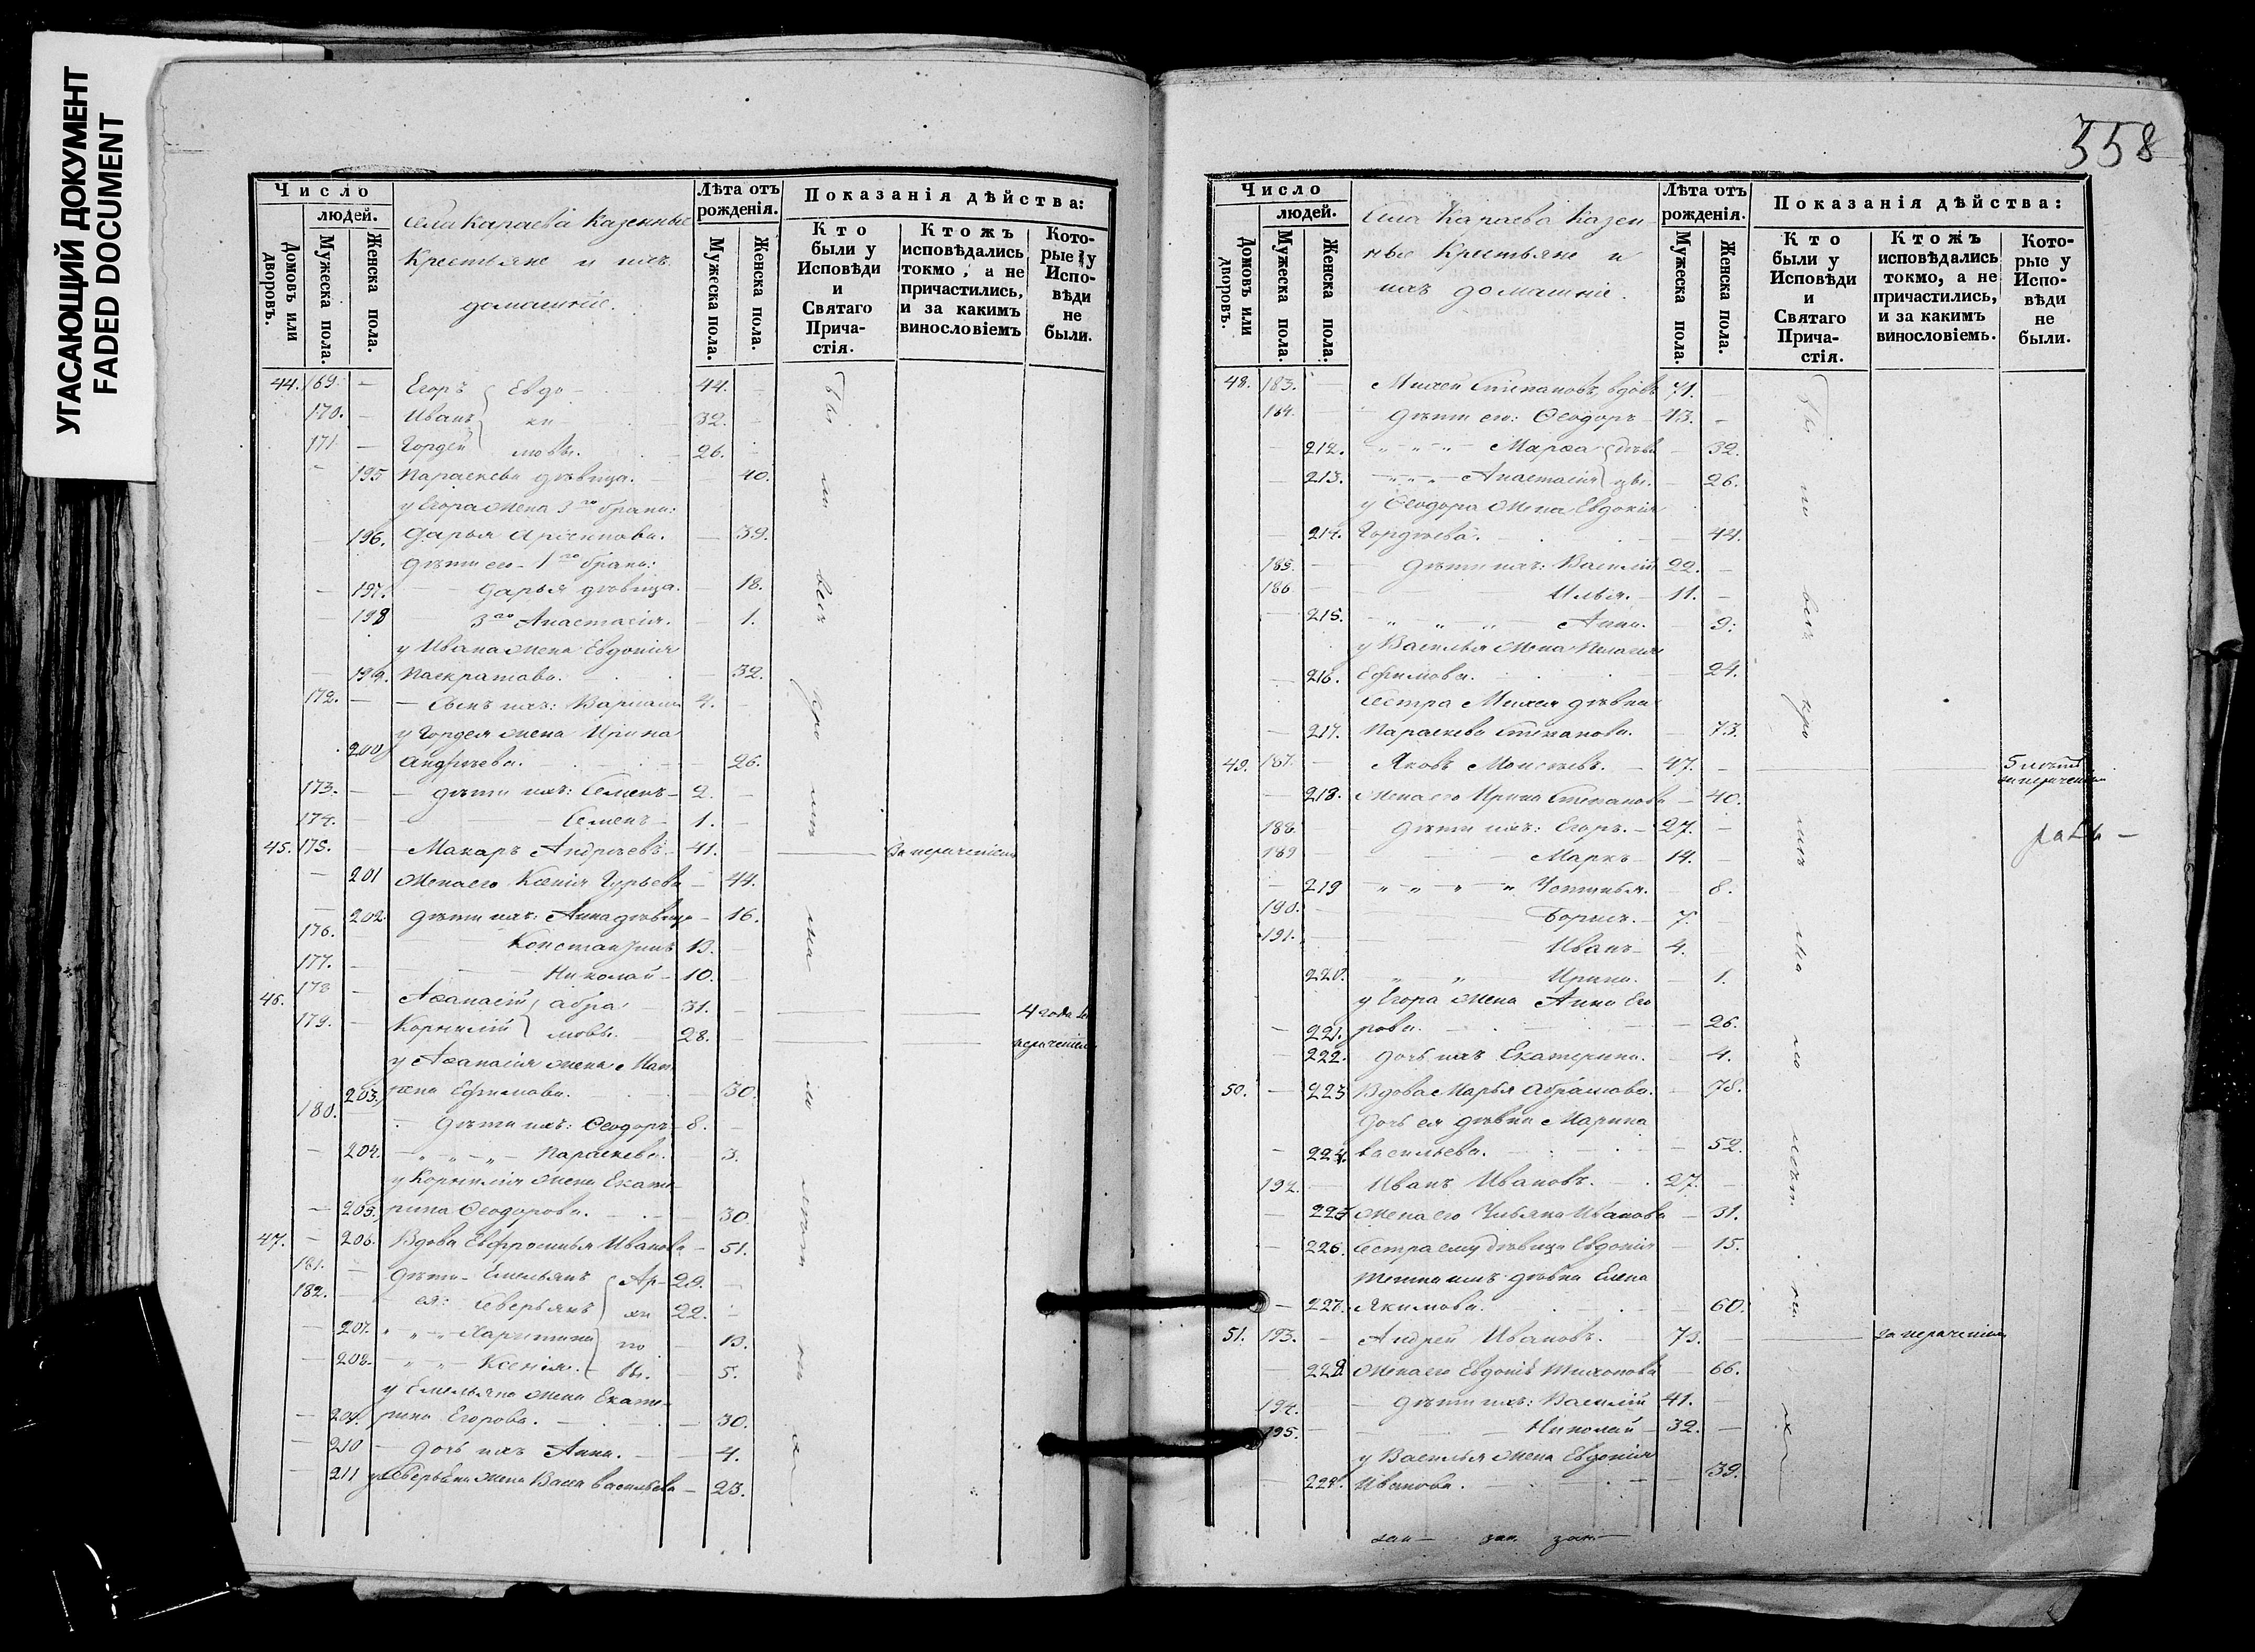 УГАСАЮЩИЙ ДОКУМЕНТ
FADED DOCUMENT
Число
людей.
Домовъ или дворовъ.
Мужеска пола.
Женска пола.
Села Караева Казенные
Крестьяне и ихъ
домашніе.
Лѣта отъ рожденія.
Мужеска пола.
Женска пола.
Показанія дѣйства:
Кто были у Исповѣди и Святаго Прича-стія.
Ктожъ исповѣдались токмо, а не причастились, и за какимъ винословіемъ
Кото-рые у Испо-вѣди не были.
44. 169. — Егоръ Евдо- 44. —
170. — Иванъ ки- 32. —
171. — Гордей мовы. 26. —
— 195 Параскева дѣвица. — 40.
у Егора жена 3го брака:
— 196. Дарья Архипова. — 39.
Дѣти его 1го брака:
— 197. Дарья дѣвица. — 18.
— 198 3го Анастасія. — 1.
у Ивана жена Евдокія
— 199. Панкратова. — 32.
172. — Сынъ ихъ: Варлаам 4. —
у Гордея жена Ирина
200 Андреева. — 26.
173. — Дѣти ихъ: Семенъ 2. —
174. — Семенъ 1. —
45. 175. — Макаръ Андреевъ 41. — За нерачениемъ
— 201 Жена его Ксенія Гурьева — 44.
— 202. Дѣти ихъ: Анна дѣвица — 16.
176. — Константинъ 13. —
177. — Николай 10. —
46. 178 — Аѳанасій Абра- 31. — 4 года за
179. — Корнилій мовы. 28. — нерачениемъ
у Аѳанасія жена Мат
203. рена Ефимова. — 30.
180. Дѣти ихъ: Ѳеодоръ 8. —
— 204. Параскева. — 3.
у Корнилія жена Екате-
— 205. рина Ѳеодорова. — 30.
47. — 206. Вдова Евфросинья Иванова — 51.
181. — Дѣти Емельянъ Ар- 29. —
182. — ея: Северьянъ хи 22. —
— 207. Харитина по — 13.
— 208. Ксенія. вы. — 5.
у Емельяна жена Екате-
— 209. рина Егорова. — 30.
— 210 Дочь ихъ Анна. — 4.
— 211 у Северьяна жена Васса Васильева — 23.
358
Число
людей.
Домовъ или дворовъ.
Мужеска пола.
Женска пола.
Села Караева Казен-
ные Крестьяне и
ихъ домашніе.
Лѣта отъ рожденія.
Мужеска пола.
Женска пола.
Показанія дѣйства:
Кто были у Исповѣди и Святаго Прича-стія.
Ктожъ исповѣдались токмо, а не причастились, и за какимъ винословіемъ.
Кото-рые у Испо-вѣди не были.
48. 183. — Михей Степановъ, вдовъ 71. —
184. — Дѣти его: Ѳеодоръ 43. —
— 212. Марѳа дѣви — 32.
— 213. Анастасія цы. — 26.
у Ѳеодора жена Евдокія
— 214. Гордѣева. — 44.
185. — Дѣти ихъ: Василій 22. —
186 — Илья. 11. —
— 215. Анна. — 9.
у Василья жена Пелагея
— 216. Ефимова. — 24.
Сестра Михея дѣвка
— 217. Параскева Степанова. — 73.
49. 187. — Яковъ Моисеевъ. 47. — 5 лѣтъ за нерачениемъ
— 218. Жена его Ирина Степанова — 40.
188. — Дѣти ихъ: Егоръ. 27. —
189 — Маркъ 14. —
— 219 Устинья. — 8.
190. — Борисъ. 7. —
191. — Иванъ 4. —
220. Ирина. — 1.
у Егора жена Анна Его
— 221. рова. — 26.
— 222. Дочь ихъ Екатерина. — 4.
50. — 223 Вдова Марья Абрамова. — 78.
Дочь ея дѣвка Марина
— 224. Васильева. — 52.
192. — Иванъ Ивановъ. 27. —
— 225 Жена его Ульяна Иванова — 31.
— 226. Сестра ему дѣвица Евдокія — 15.
Тетка имъ дѣвка Елена
— 227. Якимова. — 60.
51. 193. — Андрей Ивановъ. 73. — За нерачениемъ
— 228 Жена его Евдокія Тихонова — 66.
194. — Дѣти ихъ: Василій 41. —
195. — Николай 32. —
у Василья жена Евдокія
229. Иванова. — 39.